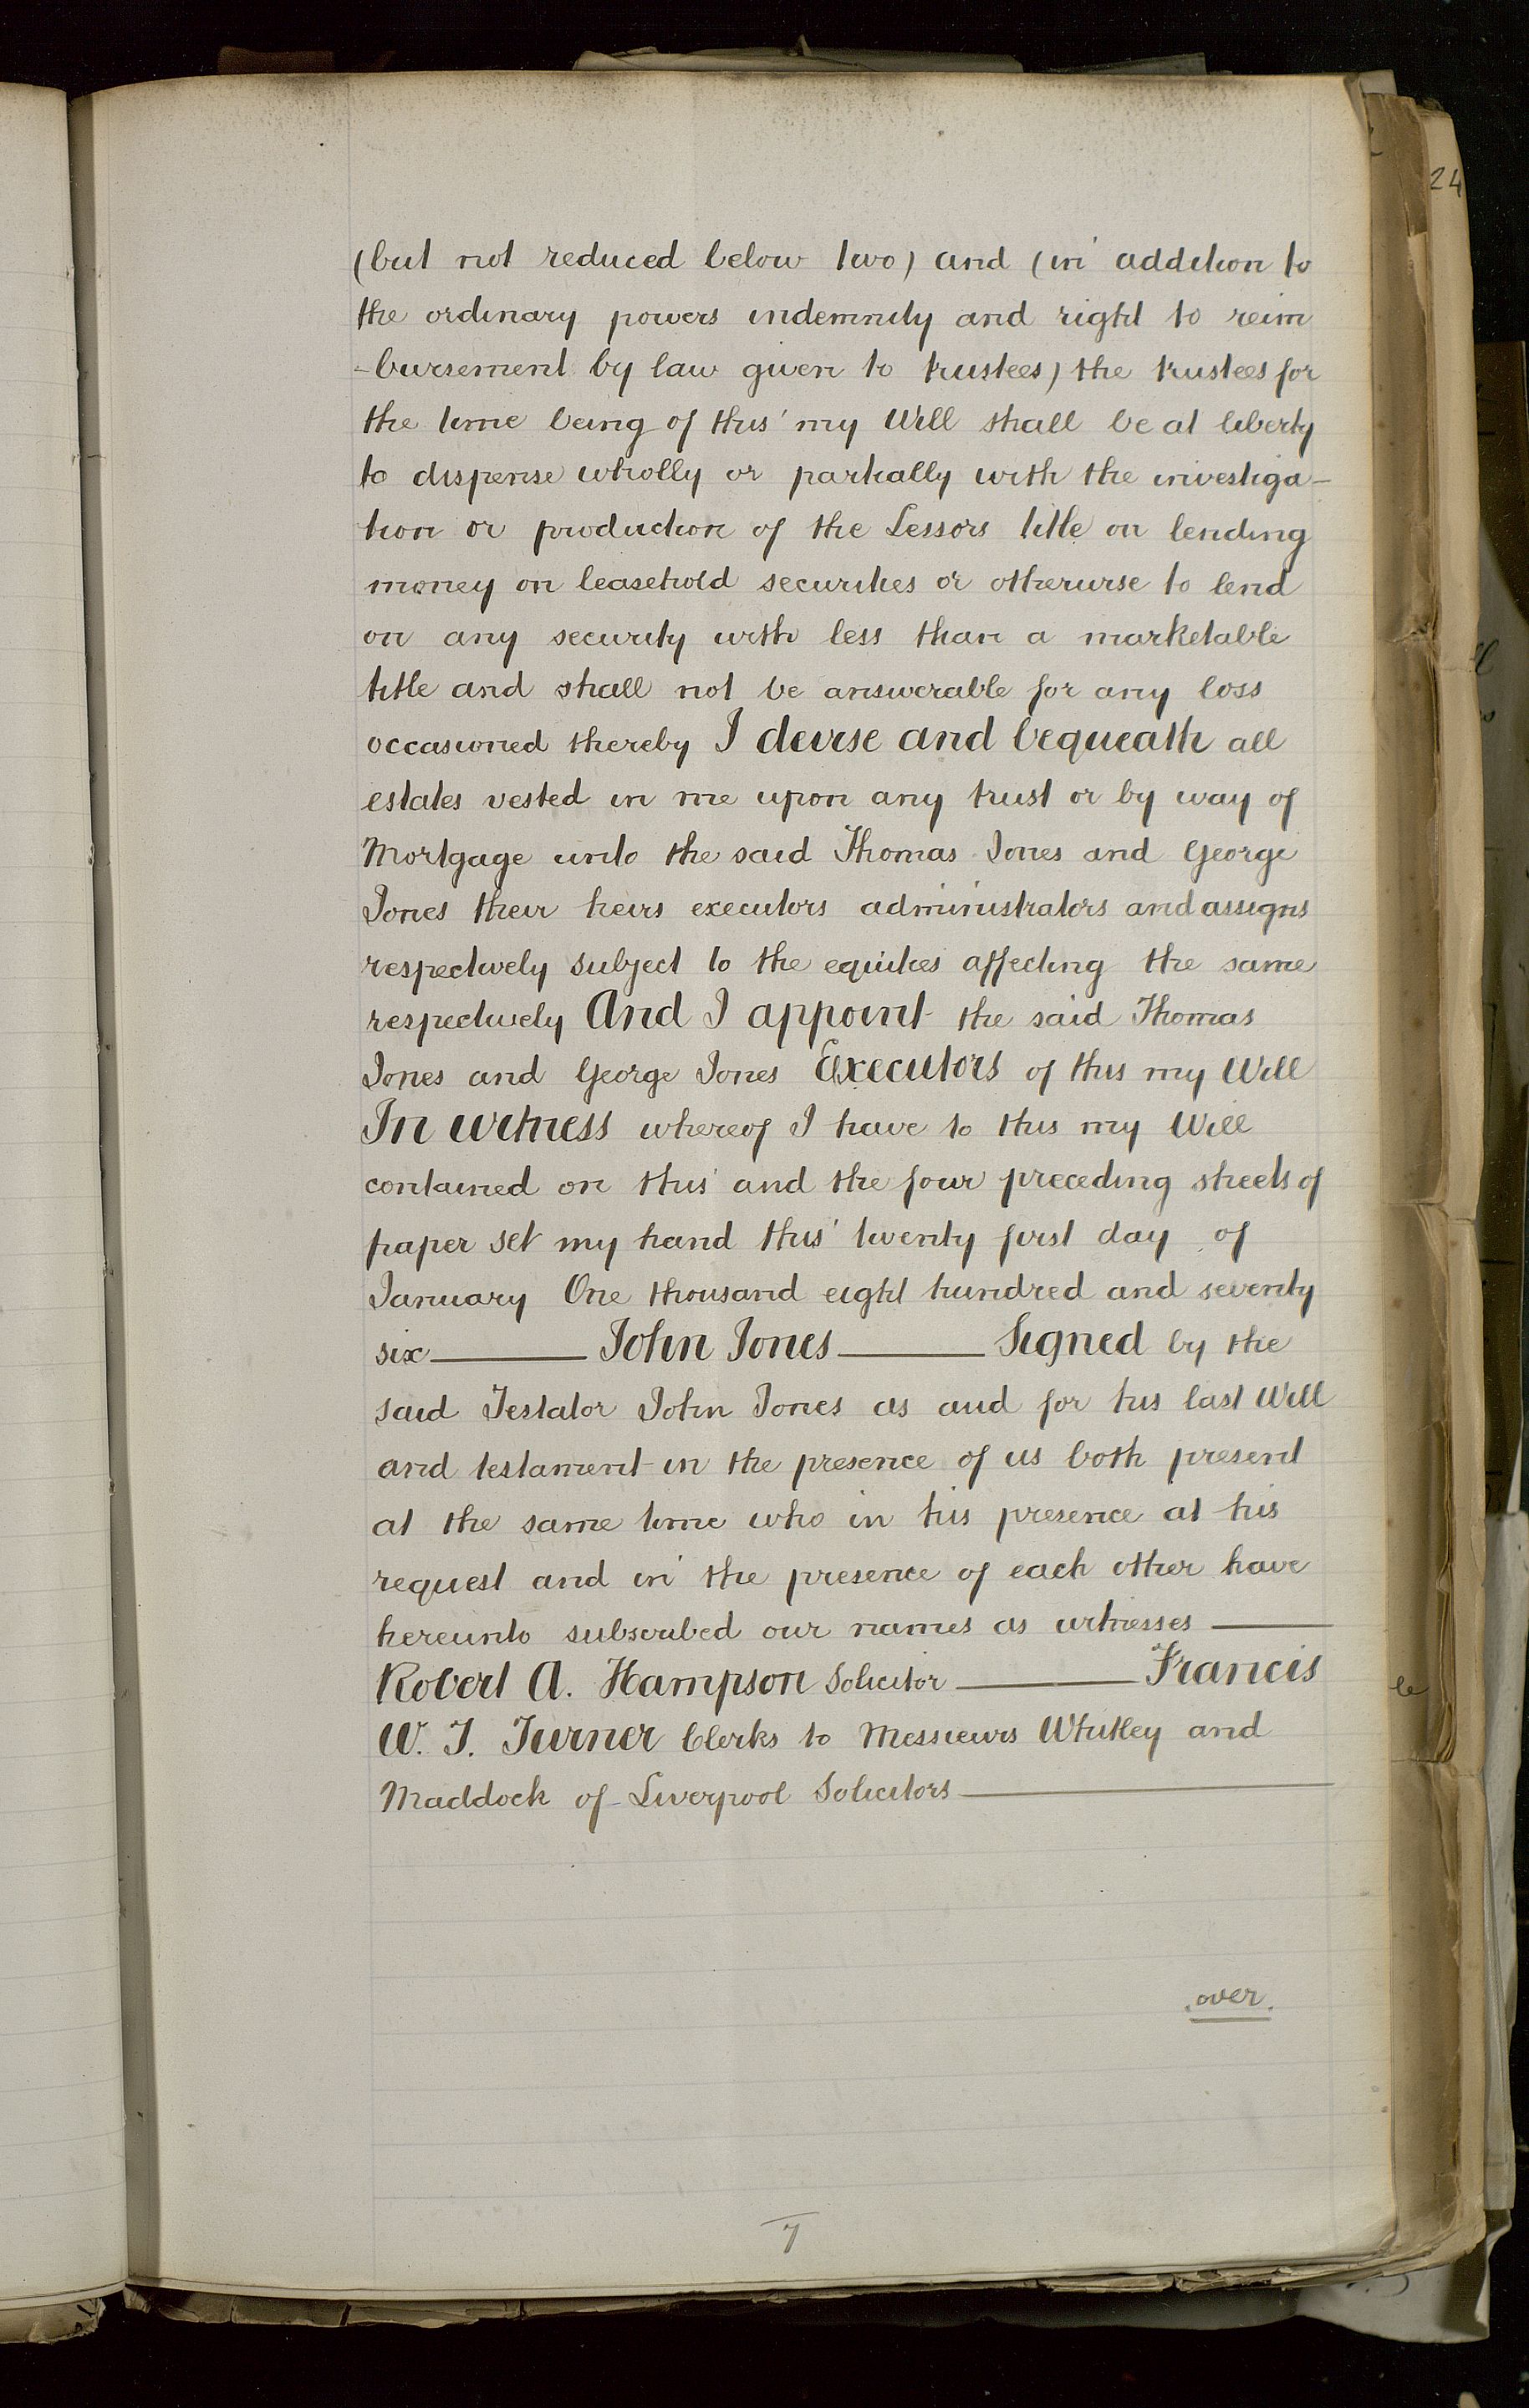 (but not reduced below two) and (in addition to
the ordinary powers indemnity and right to reim
-bursement by law given to trustees) the trustees for
the time being of this my Will shall be at liberty
to dispense wholly or partially with the investiga-
tion or production of the Lessors title on lending
money on leasehold securities or otherwise to lend
on any security with less than a marketable
title and shall not be answerable for any loss
occasioned thereby I devise and bequeath all
estates vested in me upon any trust or by way of
Mortgage unto the said Thomas Jones and George
Jones their heirs executors administrators and assigns
respectively subject to the equities affecting the same
respectively And I appoint the said Thomas
Jones and George Jones Executors of this my Will
In witness whereof I have to this my Will
contained on this and the four preceding sheets of
paper set my hand this twenty first day of
January One thousand eight hundred and seventy
six — John Jones — Signed by the
said Testator John Jones as and for his last Will
and testament in the presence of us both present
at the same time who in his presence at his
request and in the presence of each other have
hereunto subscribed our names as witnesses —
Robert A. Hampson Solicitor — Francis
W. T. Turner Clerks to Messieurs Whitley and
Maddock of Liverpool Solicitors —
over.
7
24